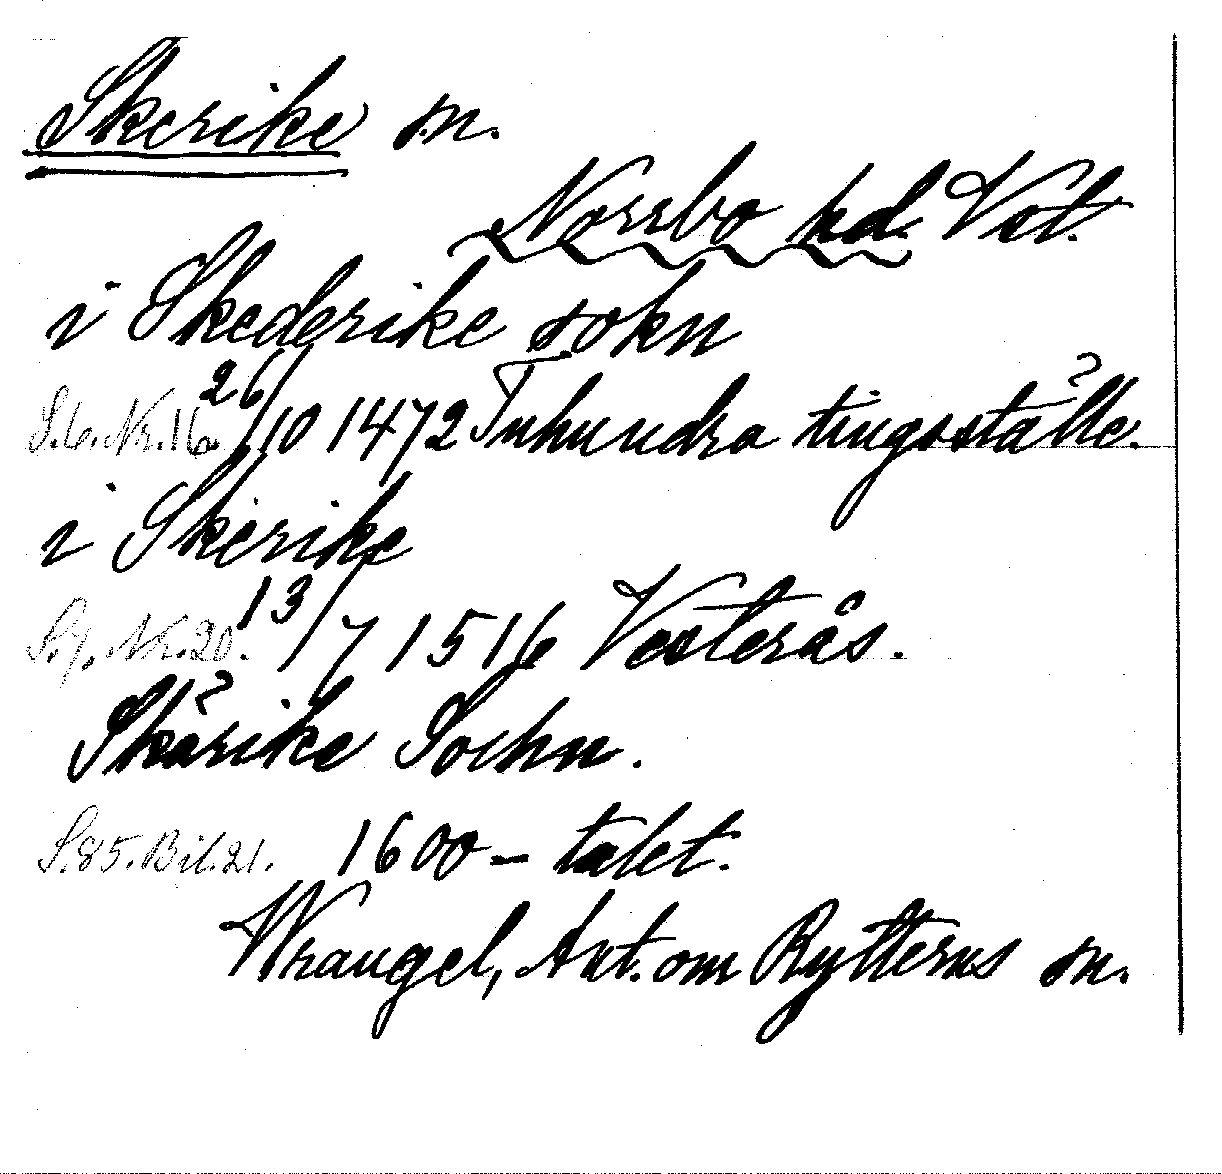 Skerike sn.
Norrbo hd. Vst.
i Skederike sokn
S.6. Nr. 16. 26/10 1472 Tuhundra tingsställe.
i Skerike
S.7. Nr. 20. 13/7 1516 Vesterås.
Skärike Sochn.
S.85. Bil. 21. 1600-talet.
Wrangel, Ant. om Rytterns sn.